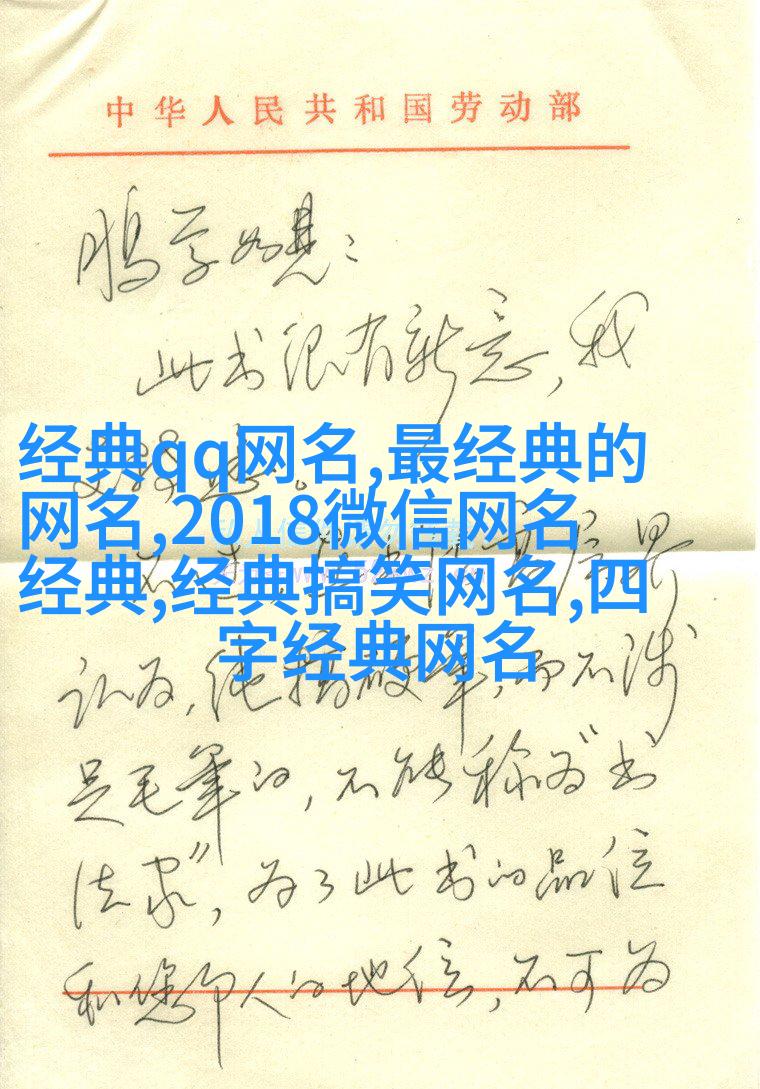 中华人民共和国劳动部
鹏学如晤：
此书很有新意，我
经典qq网名,最经典的
网名,2018微信网名
经典,经典搞笑网名,四
字经典网名
认为，纯搞硬笔，而不涉
足毛笔的，不能称为"书
法家"，为了此书的品位
和您个人的地位，不可为